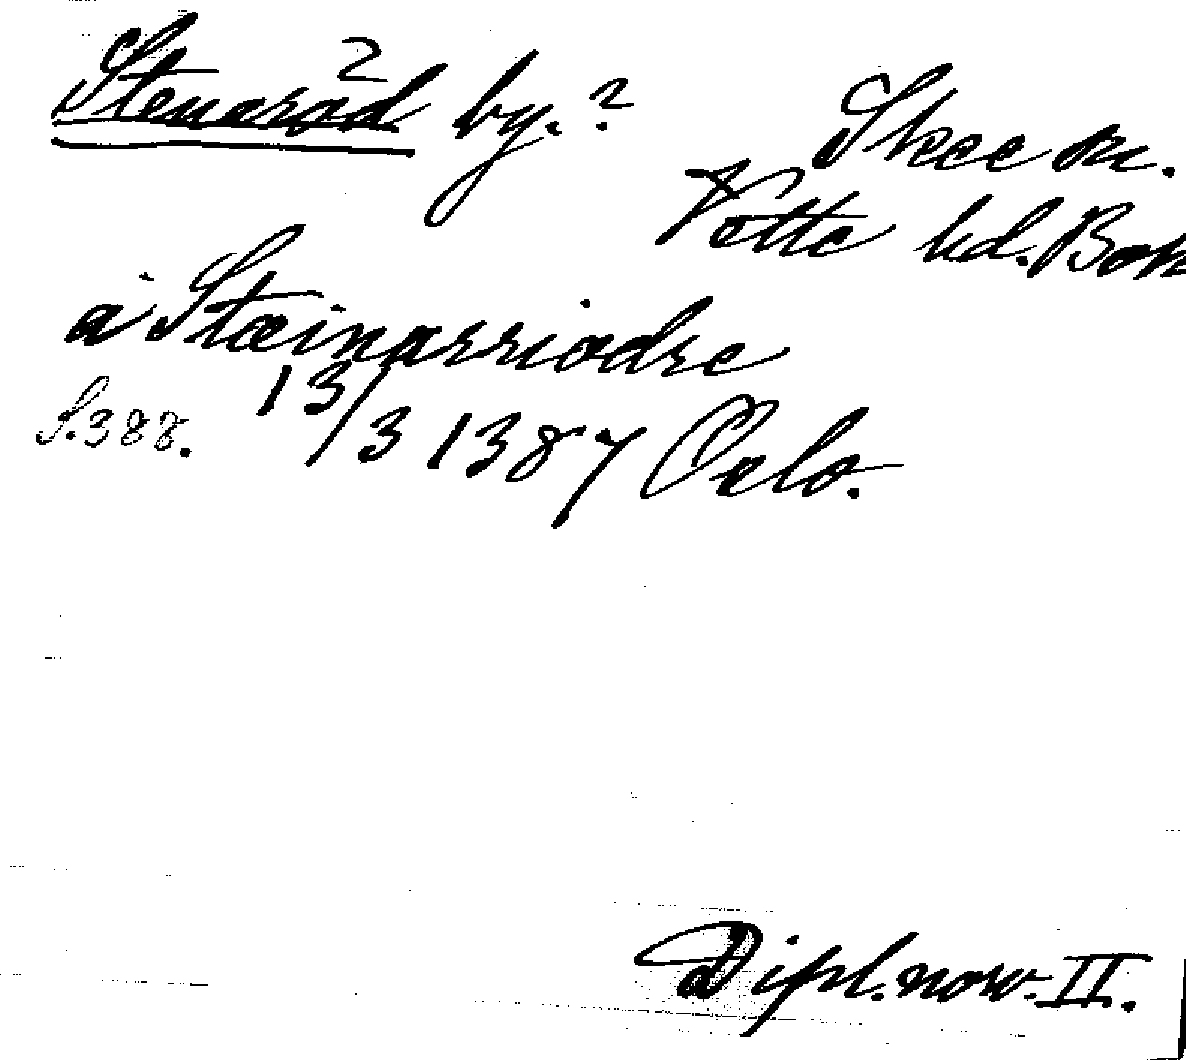 2
Stenerød by.? Skee sn.
Vette hd. Boh
a Stæinarriodre
S. 388. 13/3 1387 Oslo.
Dipl. norv. II.